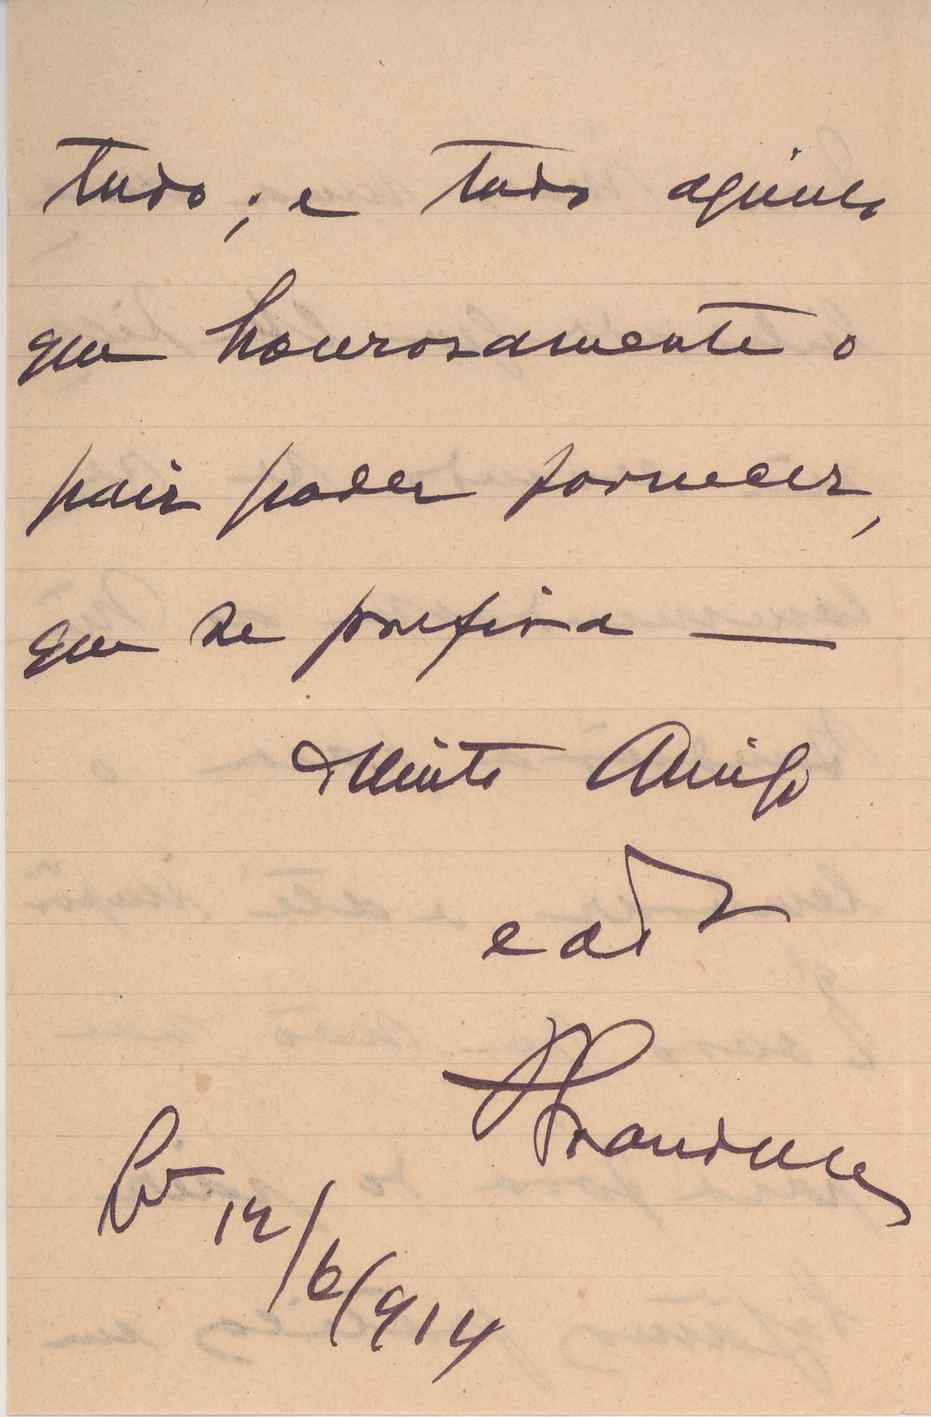 tudo; e tudo aquilo
que honrosamente o
paiz poder fornecer,
que se prefira —
Muito Amigo
e a
12/6/914